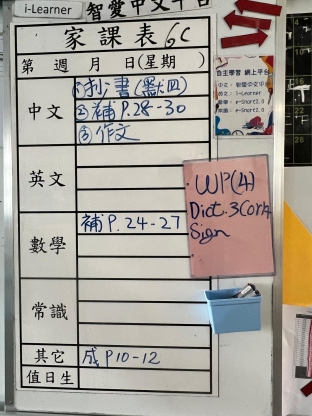 i-Learner
智愛中文平台
家課表 6C
第 週 月 日(星期 )
中文
②補 P.28-30
③作文
英文
WP(4)
Dict. 3 Corr
Sign
數學
補 P. 24-27
常識
其它
成 P10-12
值日生
自主學習 網上平台